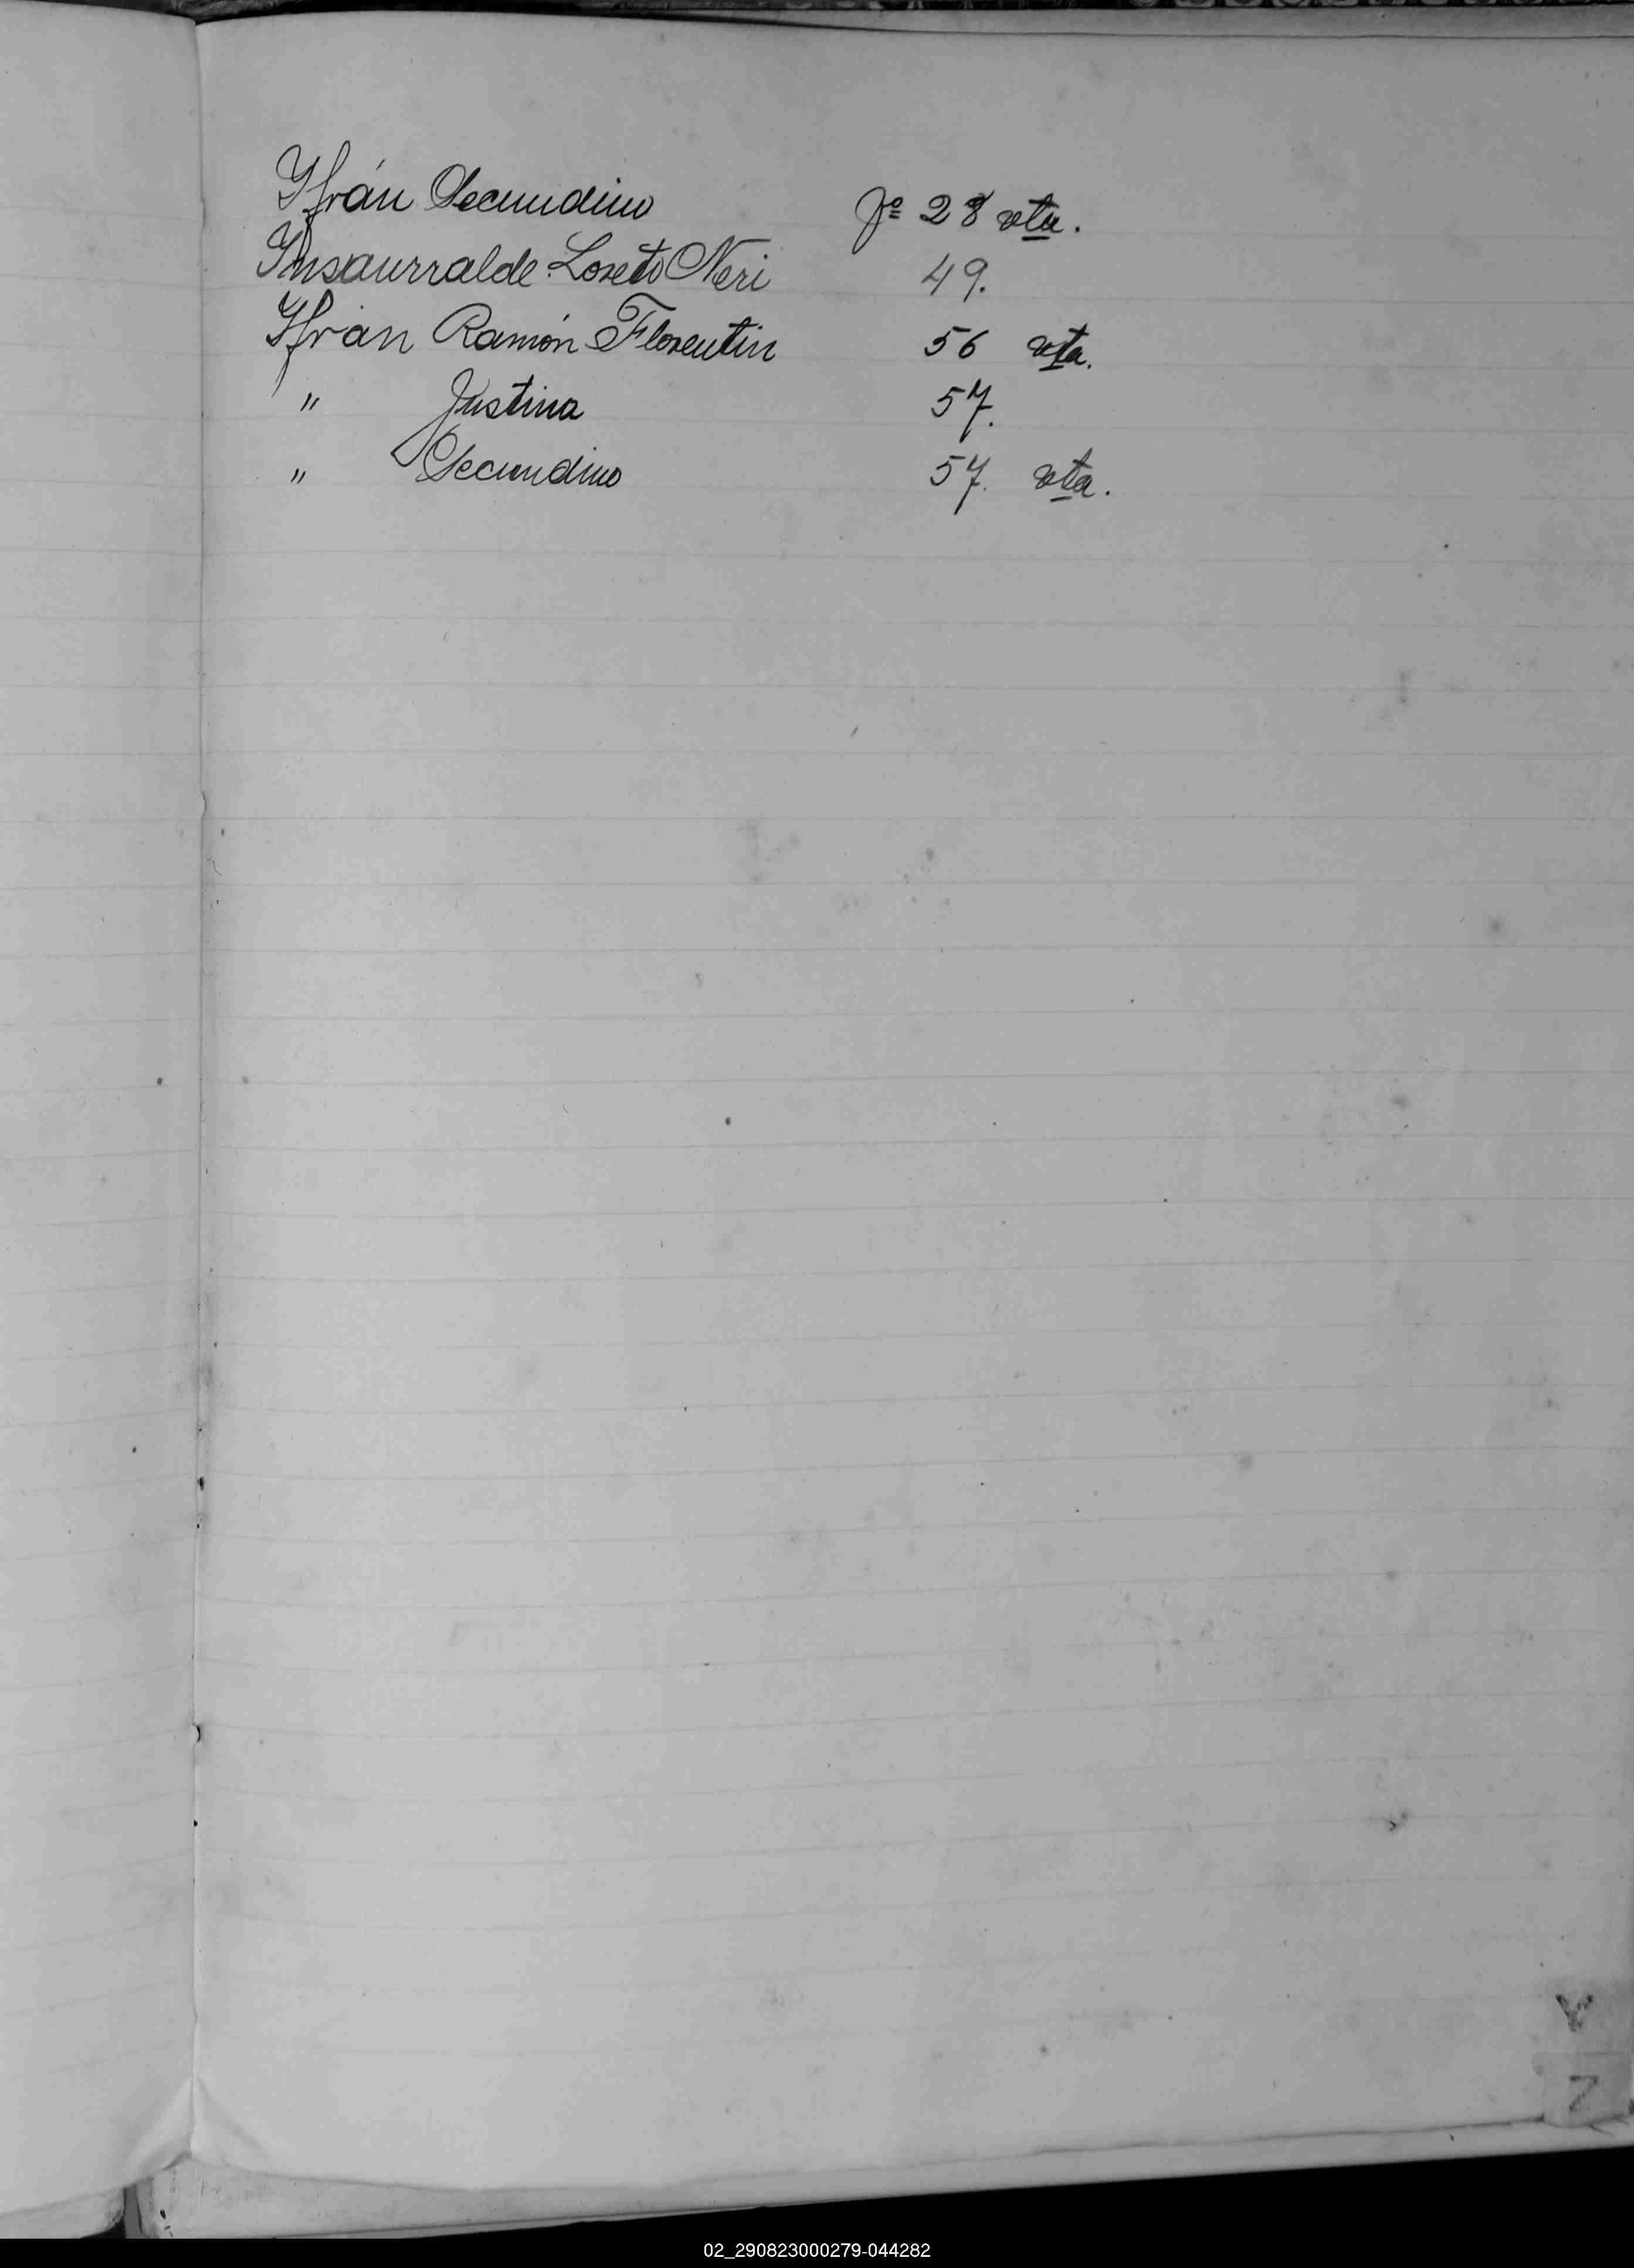 Yfrán Secundino fº 28 vta.
Ynsaurralde Loreto Neri 49.
Yfrán Ramón Florentin 56 vta.
" Justina 57.
" Secundino 57. vta.
Y
Z
02_290823000279-044282